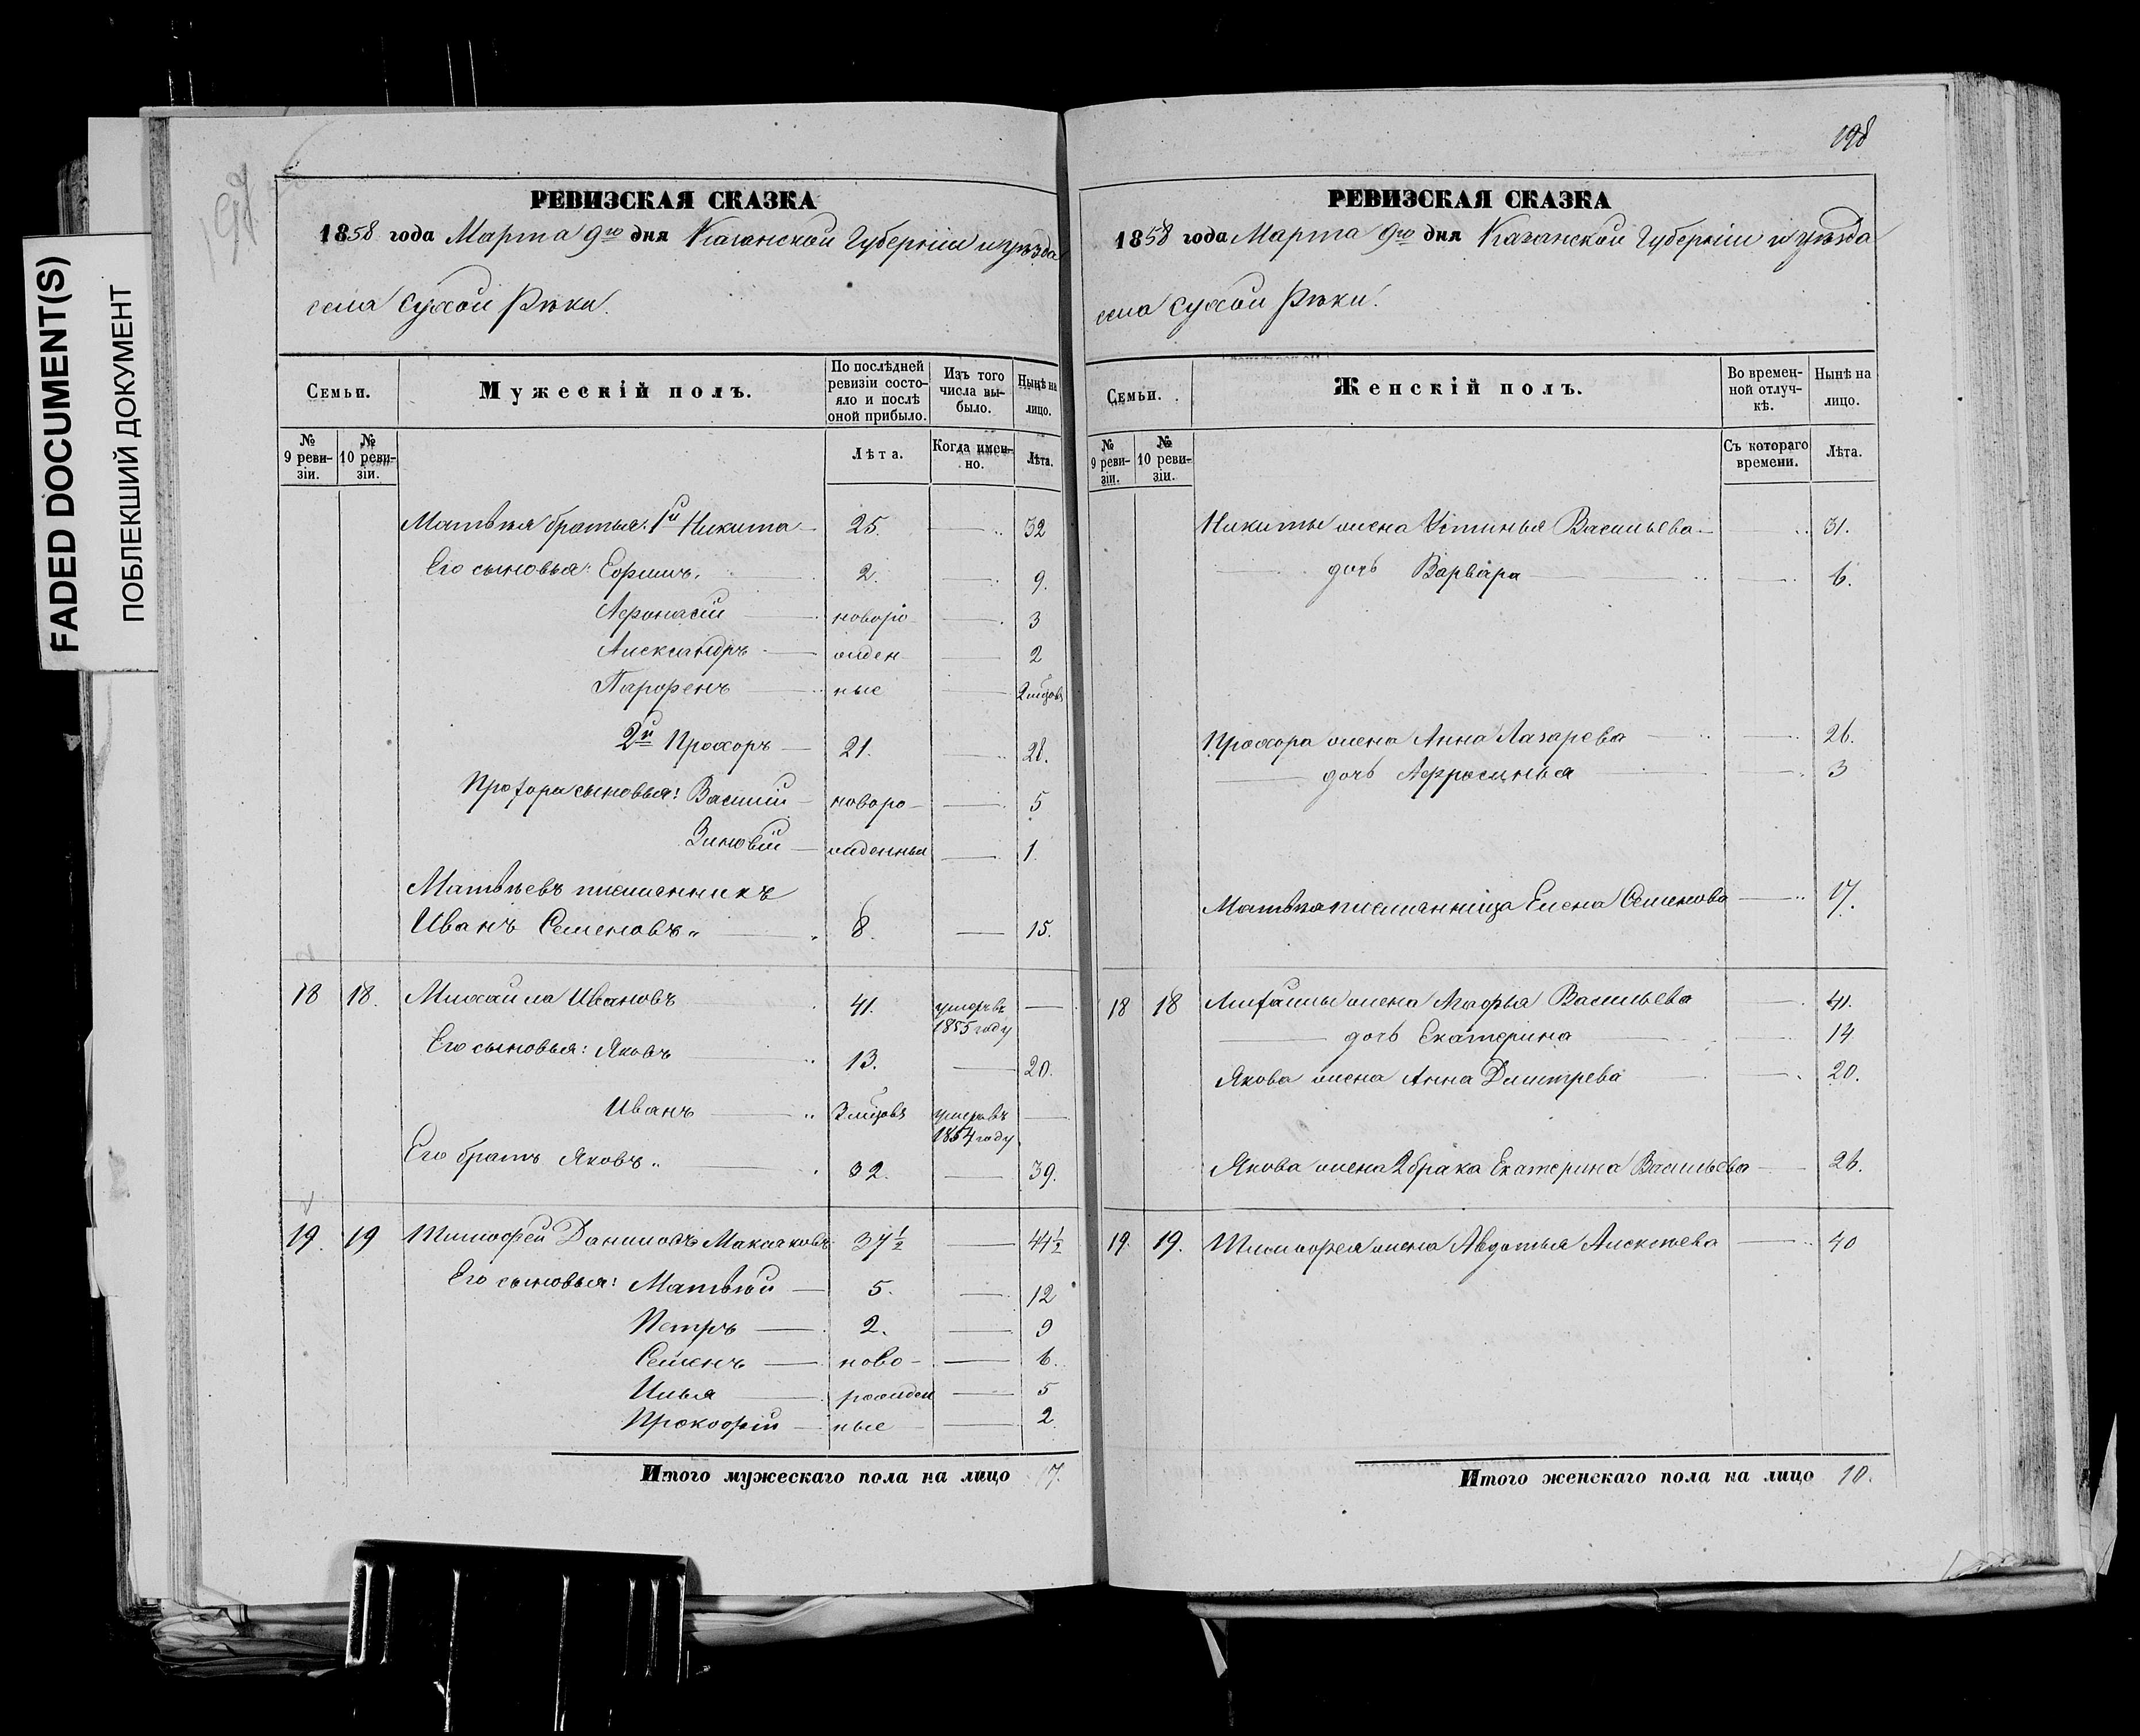 FADED DOCUMENT(S)
ПОБЛЕКШИЙ ДОКУМЕНТ
РЕВИЗСКАЯ СКАЗКА
1858 года Марта 9го дня Казанской Губерніи и уѣзда
села Сухой Рѣки.
Семьи.
Мужескій полъ.
По послѣдней ревизіи состояло и послѣ оной прибыло.
Изъ того числа выбыло.
Нынѣ на лицо.
№ 9 ревизіи.
№ 10 ревизіи.
Лѣта.
Когда именно.
Лѣта.
Матвѣя братья: 1й Никита 25. 32
Его сыновья: Ефимъ. 2. 9.
Афонасій новоро 3
Александръ жден 2
Парфенъ ные 2 мѣсяцовъ
2й Прохоръ 21. 28.
Прохора сыновья: Василій новоро 5
Зиновій жденныя 1.
Матвѣевъ племенникъ
Иванъ Семеновъ 8. 15.
18 18. Михайла Ивановъ 41. умеръ въ 1855 году
Его сыновья: Яковъ 13. 20.
Иванъ 3 мѣсяцовъ умеръ въ 1854 году
Его братъ Яковъ 32. 39.
19. 19 Тимофей Даниловъ Маклаковъ 37 1/2 44 1/2
Его сыновья: Матвѣй 5. 12
Петръ 2. 9
Семенъ ново- 6.
Илья рожден 5
Прокофій ные 2
Итого мужескаго пола на лицо 17.
198
РЕВИЗСКАЯ СКАЗКА
1858 года Марта 9го дня Казанской Губерніи и уѣзда
села Сухой Рѣки.
Семьи.
Женскій полъ.
Во временной отлучкѣ.
Нынѣ на лицо.
№ 9 ревизіи.
№ 10 ревизіи.
Съ котораго времени.
Лѣта.
Никиты жена Устинья Васильева 31.
дочь Варвара 6.
Прохора жена Анна Лазарева 26.
дочь Афросинья 3
Матвѣя племянница Елена Семенова 17.
18 18 Михайлы жена Агафья Васильева 41.
дочь Екатерина 14
Якова жена Анна Дмитрева 20.
Якова жена 2 брака Екатерина Васильева 26.
19. 19. Тимофея жена Авдотья Алексѣева 40
Итого женскаго пола на лицо 10.